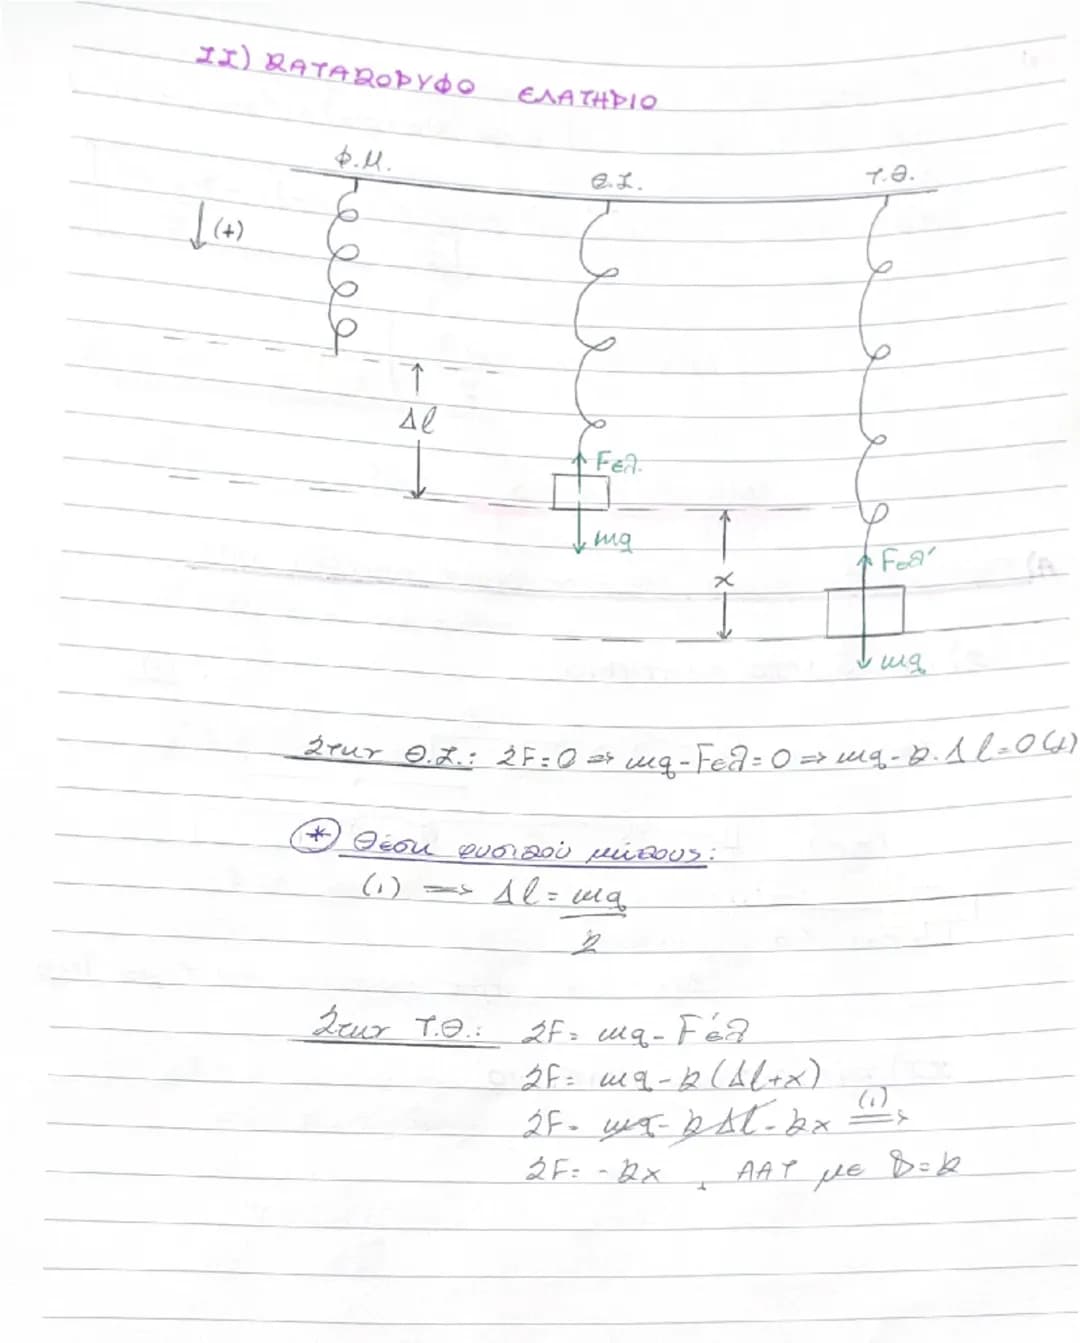 II) ΚΑΤΑΚΟΡΥΦΟ ΕΛΑΤΗΡΙΟ
Φ.Μ. Θ.Ι. Τ.Θ.
(+)
Δl
Fελ.
mg
x
Fελ'
mg
Στην Θ.Ι.: ΣF=0 => mg-Fελ=0 => mg-k.Δl=0 (1)
* Θέση φυσικού μήκους:
(1) => Δl = mg
k
Στην Τ.Θ.: ΣF= mg-F'ελ
ΣF= mg-k(Δl+x)
ΣF= mg-kΔl-kx (1) =>
ΣF= -kx, ΑΑΤ με D=k